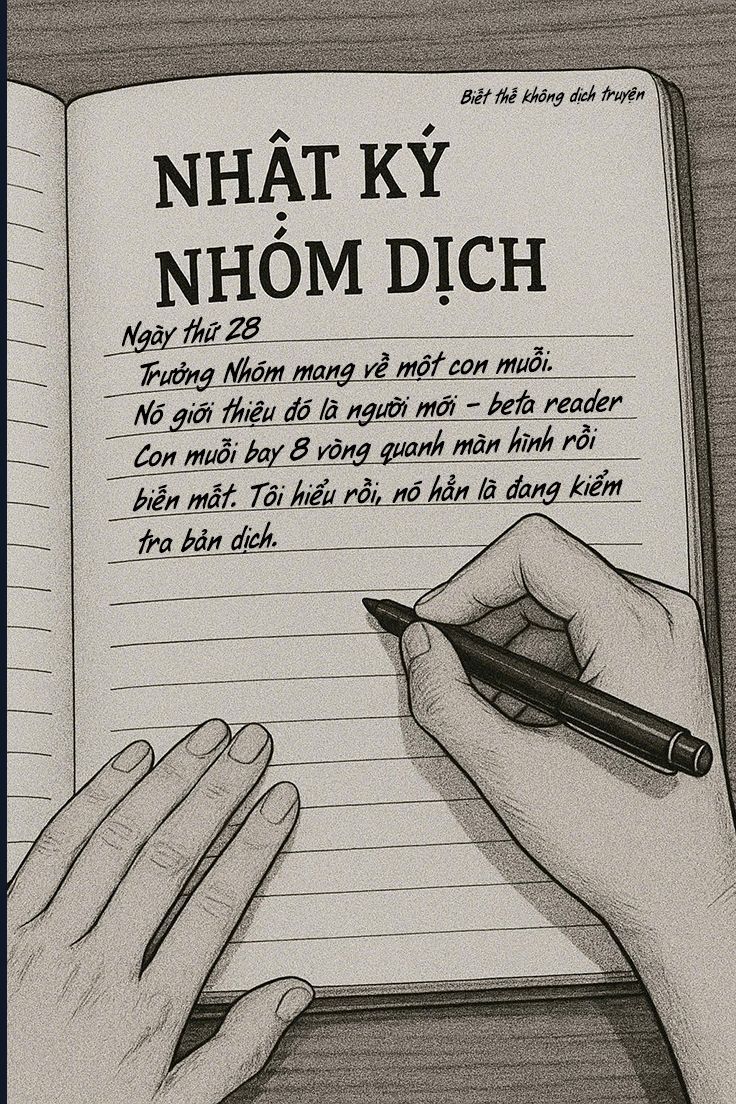 Biết thế không dịch truyện
NHẬT KÝ
NHÓM DỊCH
Ngày thứ 28
Trưởng Nhóm mang về một con muỗi.
Nó giới thiệu đó là người mới – beta reader
Con muỗi bay 8 vòng quanh màn hình rồi
biến mất. Tôi hiểu rồi, nó hẳn là đang kiểm
tra bản dịch.